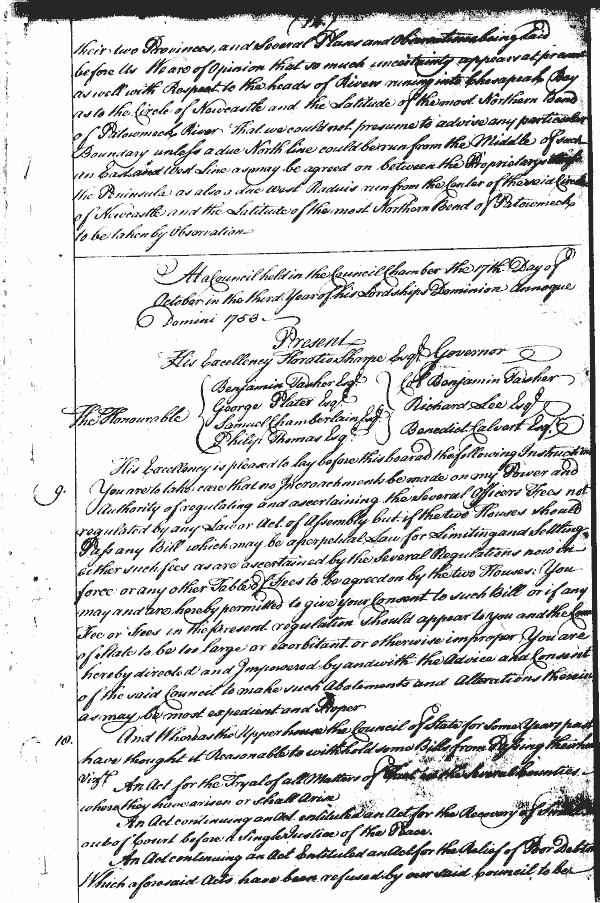 (12.)
their two Provinces, and Several Plans and Observations being laid
before Us We are of Opinion that so much uncertainty appears at present
as well with Respect to the heads of Rivers runing into Chesapeak Bay
as to the Circle of Newcastle and the Latitude of the most Northern Bend
of Patowmeck River That we could not presume to advise any particular
Boundary unless a due North line could be run from the Middle of such
an East and West Line as may be agreed on between the Proprietarys
the Peninsula as also a due west Radius run from the Center of the said Circle
of Newcastle and the Latitude of the most Northern Bend of Patowmeck
to be taken by Observation
At a Council held in the Council Chamber the 17th Day of
October in the third Year of his Lordships Dominion annoque
Domini 1753
Present
His Excellency Horatio Sharpe Esqr. Governor
The Honourable
Benjamin Tasker Esqr.
George Plater Esqr.
Samuel Chamberlain Esqr.
Philip Thomas Esqr.
Col. Benjamin Tasker
Richard Lee Esqr.
Benedict Calvert Esqr.
His Excellency is pleased to lay before this board the following Instruction
9. You are to take care that no Incroachments be made on my Power and
Authority of regulating and ascertaining the Several Officers Frees not
regulated by any Law or Act of Assembly but if the two Houses should
Pass any Bill which may be a perpetual Law for Limiting and Settling
either such fees as are ascertained by the Several Regulations now in
force or any other Table of Fees to be agreed on by the two Houses: You
may and are hereby permitted to give your Consent to such Bill or if any
Fee or Fees in the Present regulation should appear to you and the
of State to be too large or exorbitant or otherwise improper You are
hereby directed and Impowered by and with the Advice and Consent
of the said Council to make such Abatements and Alterations therein
as may be most expedient and Proper
10. And Whereas the Upper house the Council of State for some Years past
have thought it Reasonable to withhold some Bills from Passing their
Vizt.
An Act for the Tryal of all Matters of Fact in the several Counties
where they have arisen or Shall Arise
An Act continuing an Act entituled an Act for the Recovery of Small
out of Court before a Single Justice of the Peace.
An Act continuing an Act Entituled an Act for the Relief of Poor Debtors
Which aforesaid Acts have been refused by our said Council to be